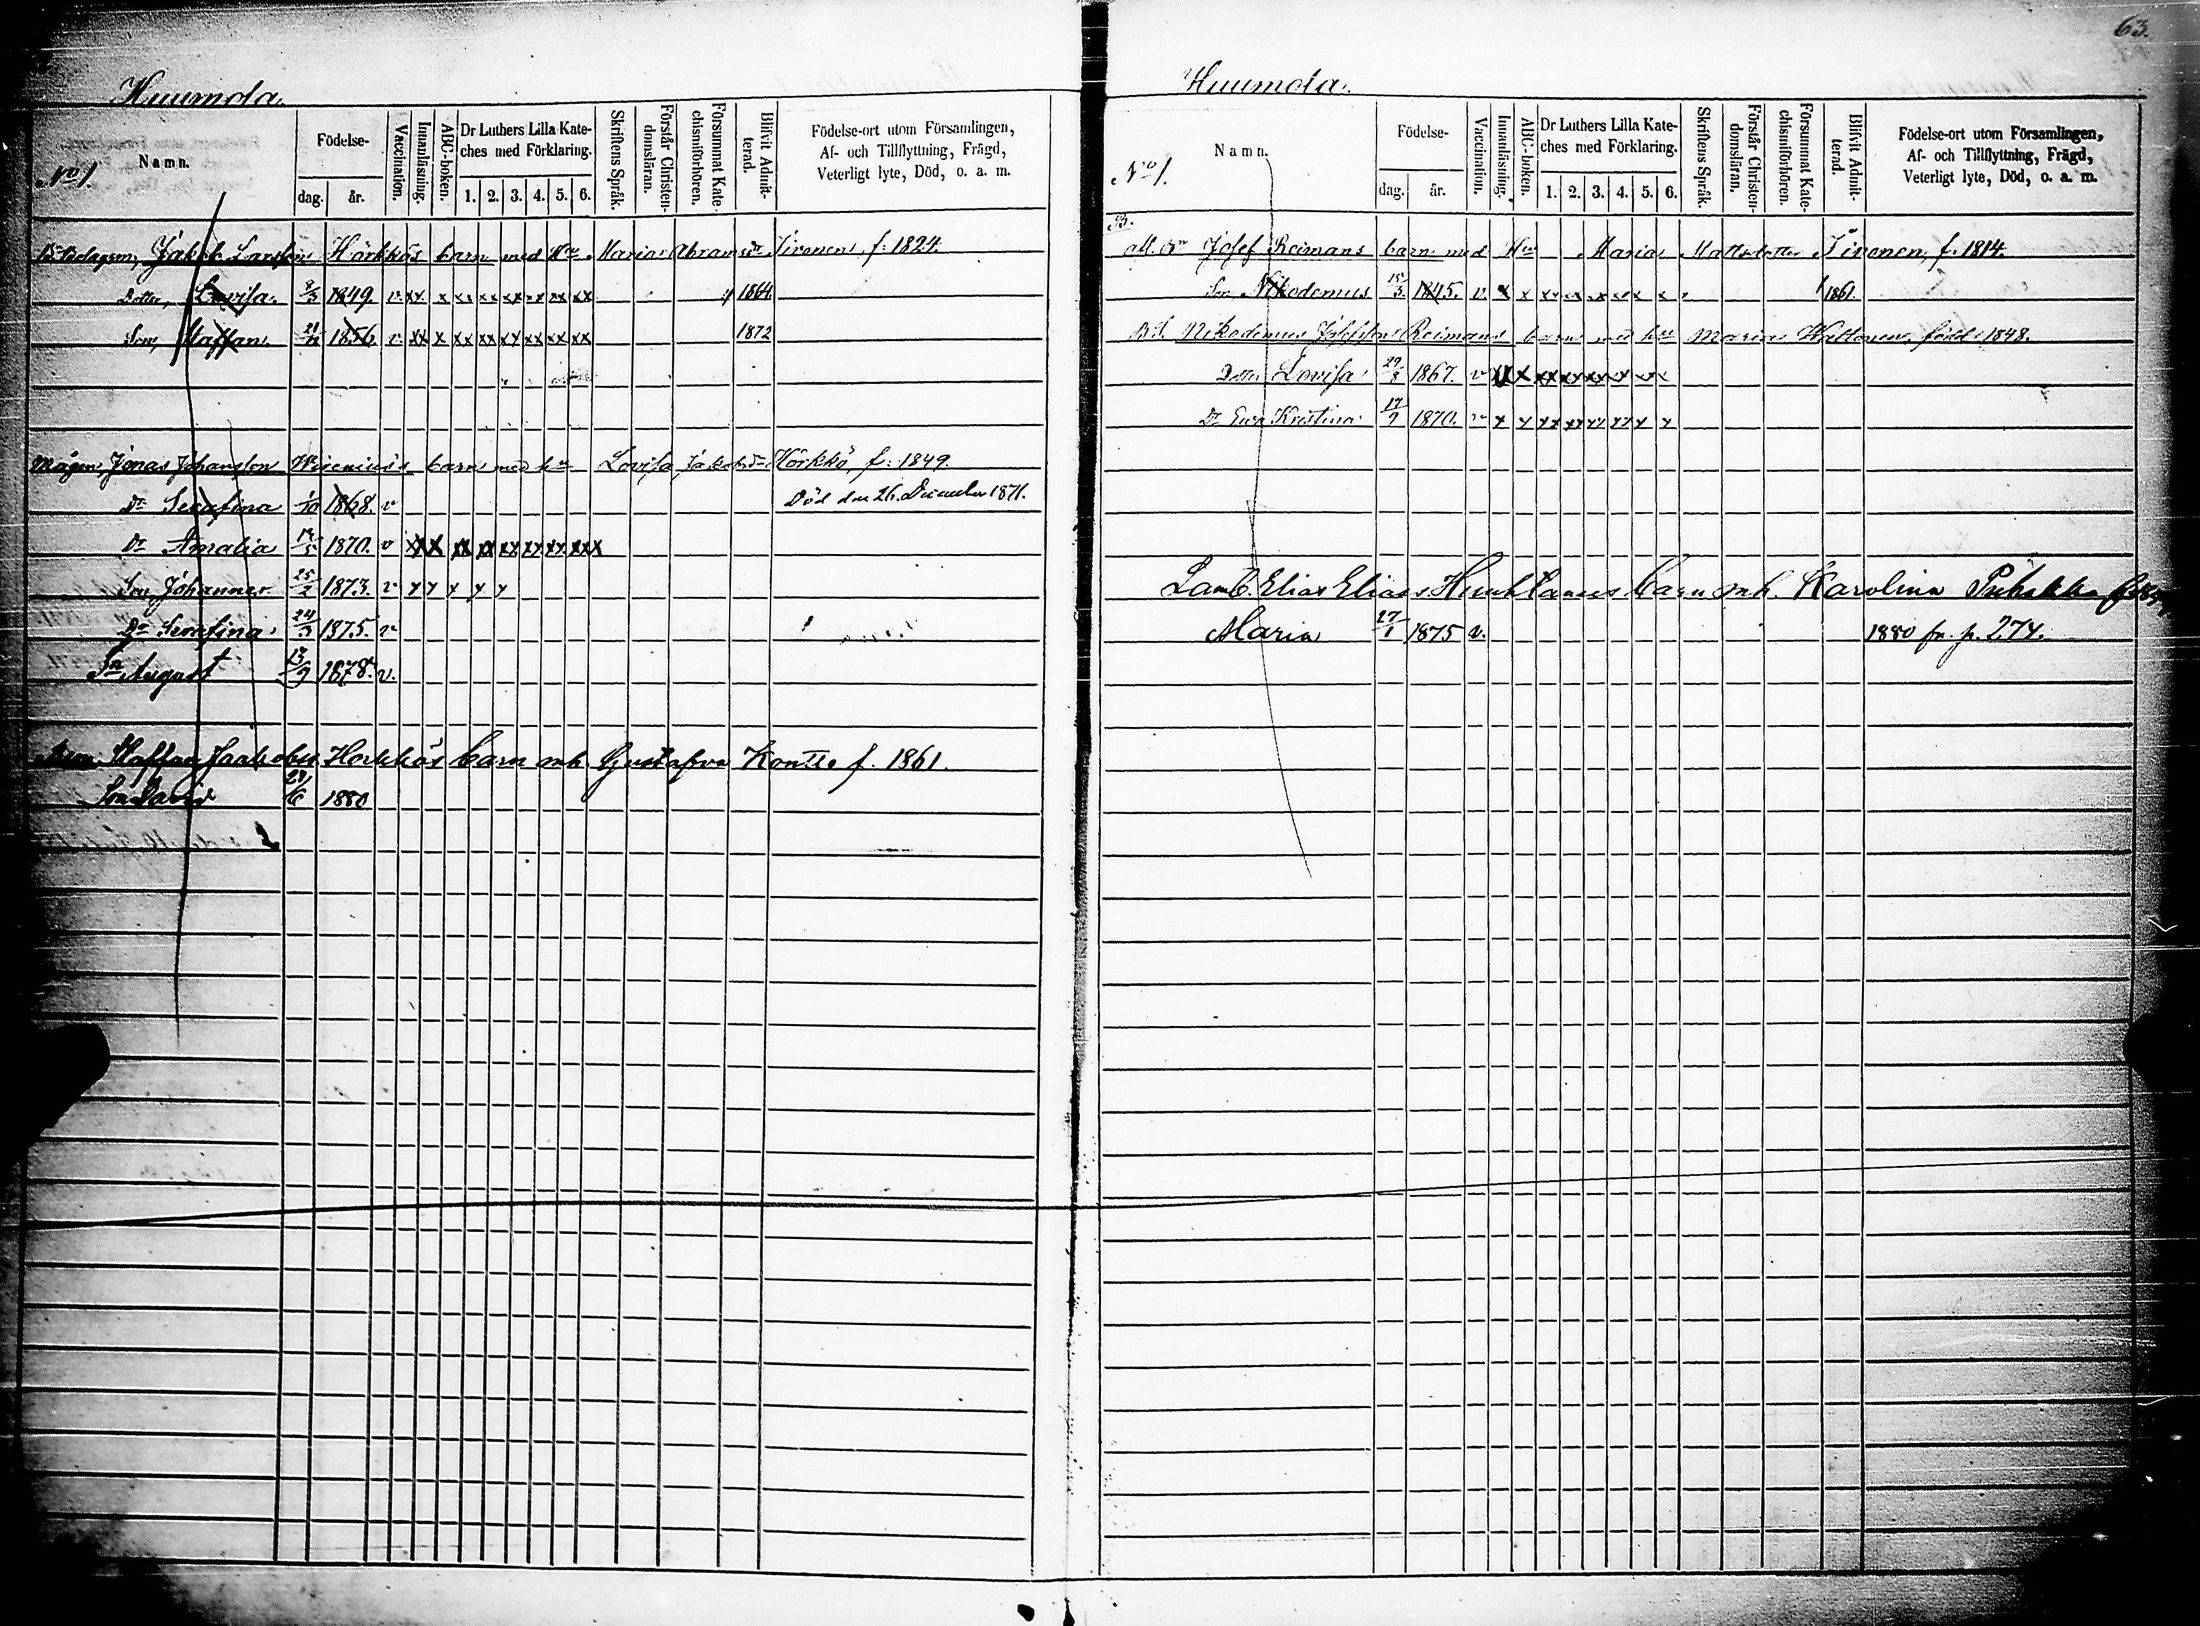 63.
Huumola.
No 1.
Namn.
Födelse-
dag. år.
Vaccination.
Innanläsning.
ABC-boken.
Dr Luthers Lilla Kate-
ches med Förklaring.
1. 2. 3. 4. 5. 6.
Skriftens Språk.
Förstår Christen-
domsläran.
Försummat Kate-
chismiförhören.
Blifvit Admit-
terad.
Födelse-ort utom Församlingen,
Af- och Tillflyttning, Frägd,
Veterligt lyte, Död, o. a. m.
Jakob Larsson Härkkös barn med Maria Abramsdr Tironen, f: 1824.
Dotter, Lovisa. 8/3 1849. v. xx x xx xx xx xx xx xx 1864.
Son, Staffan 1856 v xx x xx xx xx xx xx xx 1872
Mågen, Jonas Johansson barn med hu Lovisa Jakobsdr Hörkkö, f: 1849.
Dr Serafina 1/10 1868. v Död den 26. December 1871.
Dr Amalia 1870. v xx x xx xx xx xx xx xxx
Son, Johannes 25/2 1873. v x x x x x
Dr Serafina 24/3 1875. v
Sn August 13/9 1878. v.
Staffan Jaakobss Horkkös barn mh. Gustafva Kontte f. 1861.
Son David 1880
Huumola.
No 1.
Namn.
Födelse-
dag. år.
Vaccination.
Innanläsning.
ABC-boken.
Dr Luthers Lilla Kate-
ches med Förklaring.
1. 2. 3. 4. 5. 6.
Skriftens Språk.
Förstår Christen-
domsläran.
Försummat Kate-
chismiförhören.
Blifvit Admit-
terad.
Födelse-ort utom Församlingen,
Af- och Tillflyttning, Frägd,
Veterligt lyte, Död, o. a. m.
B.
Josef Reimans barn med Hu Maria Mattsdotter Tironen, f: 1814.
Son Nikodemus 15/3 1845. v. x x xx xx x xx x x 1861.
Nikodemus Josefsson Reimans barn med hu Maria Waltonen, född 1848.
Dotter Lovisa 29/8 1867. v x x xx xx xx x x x
Dr Eva Kristina 1870. v x x xx xx xx xx x x
Elias Elias barn mh. Karolina
Maria 27/1 1875 v. 1880 fr. p. 274.